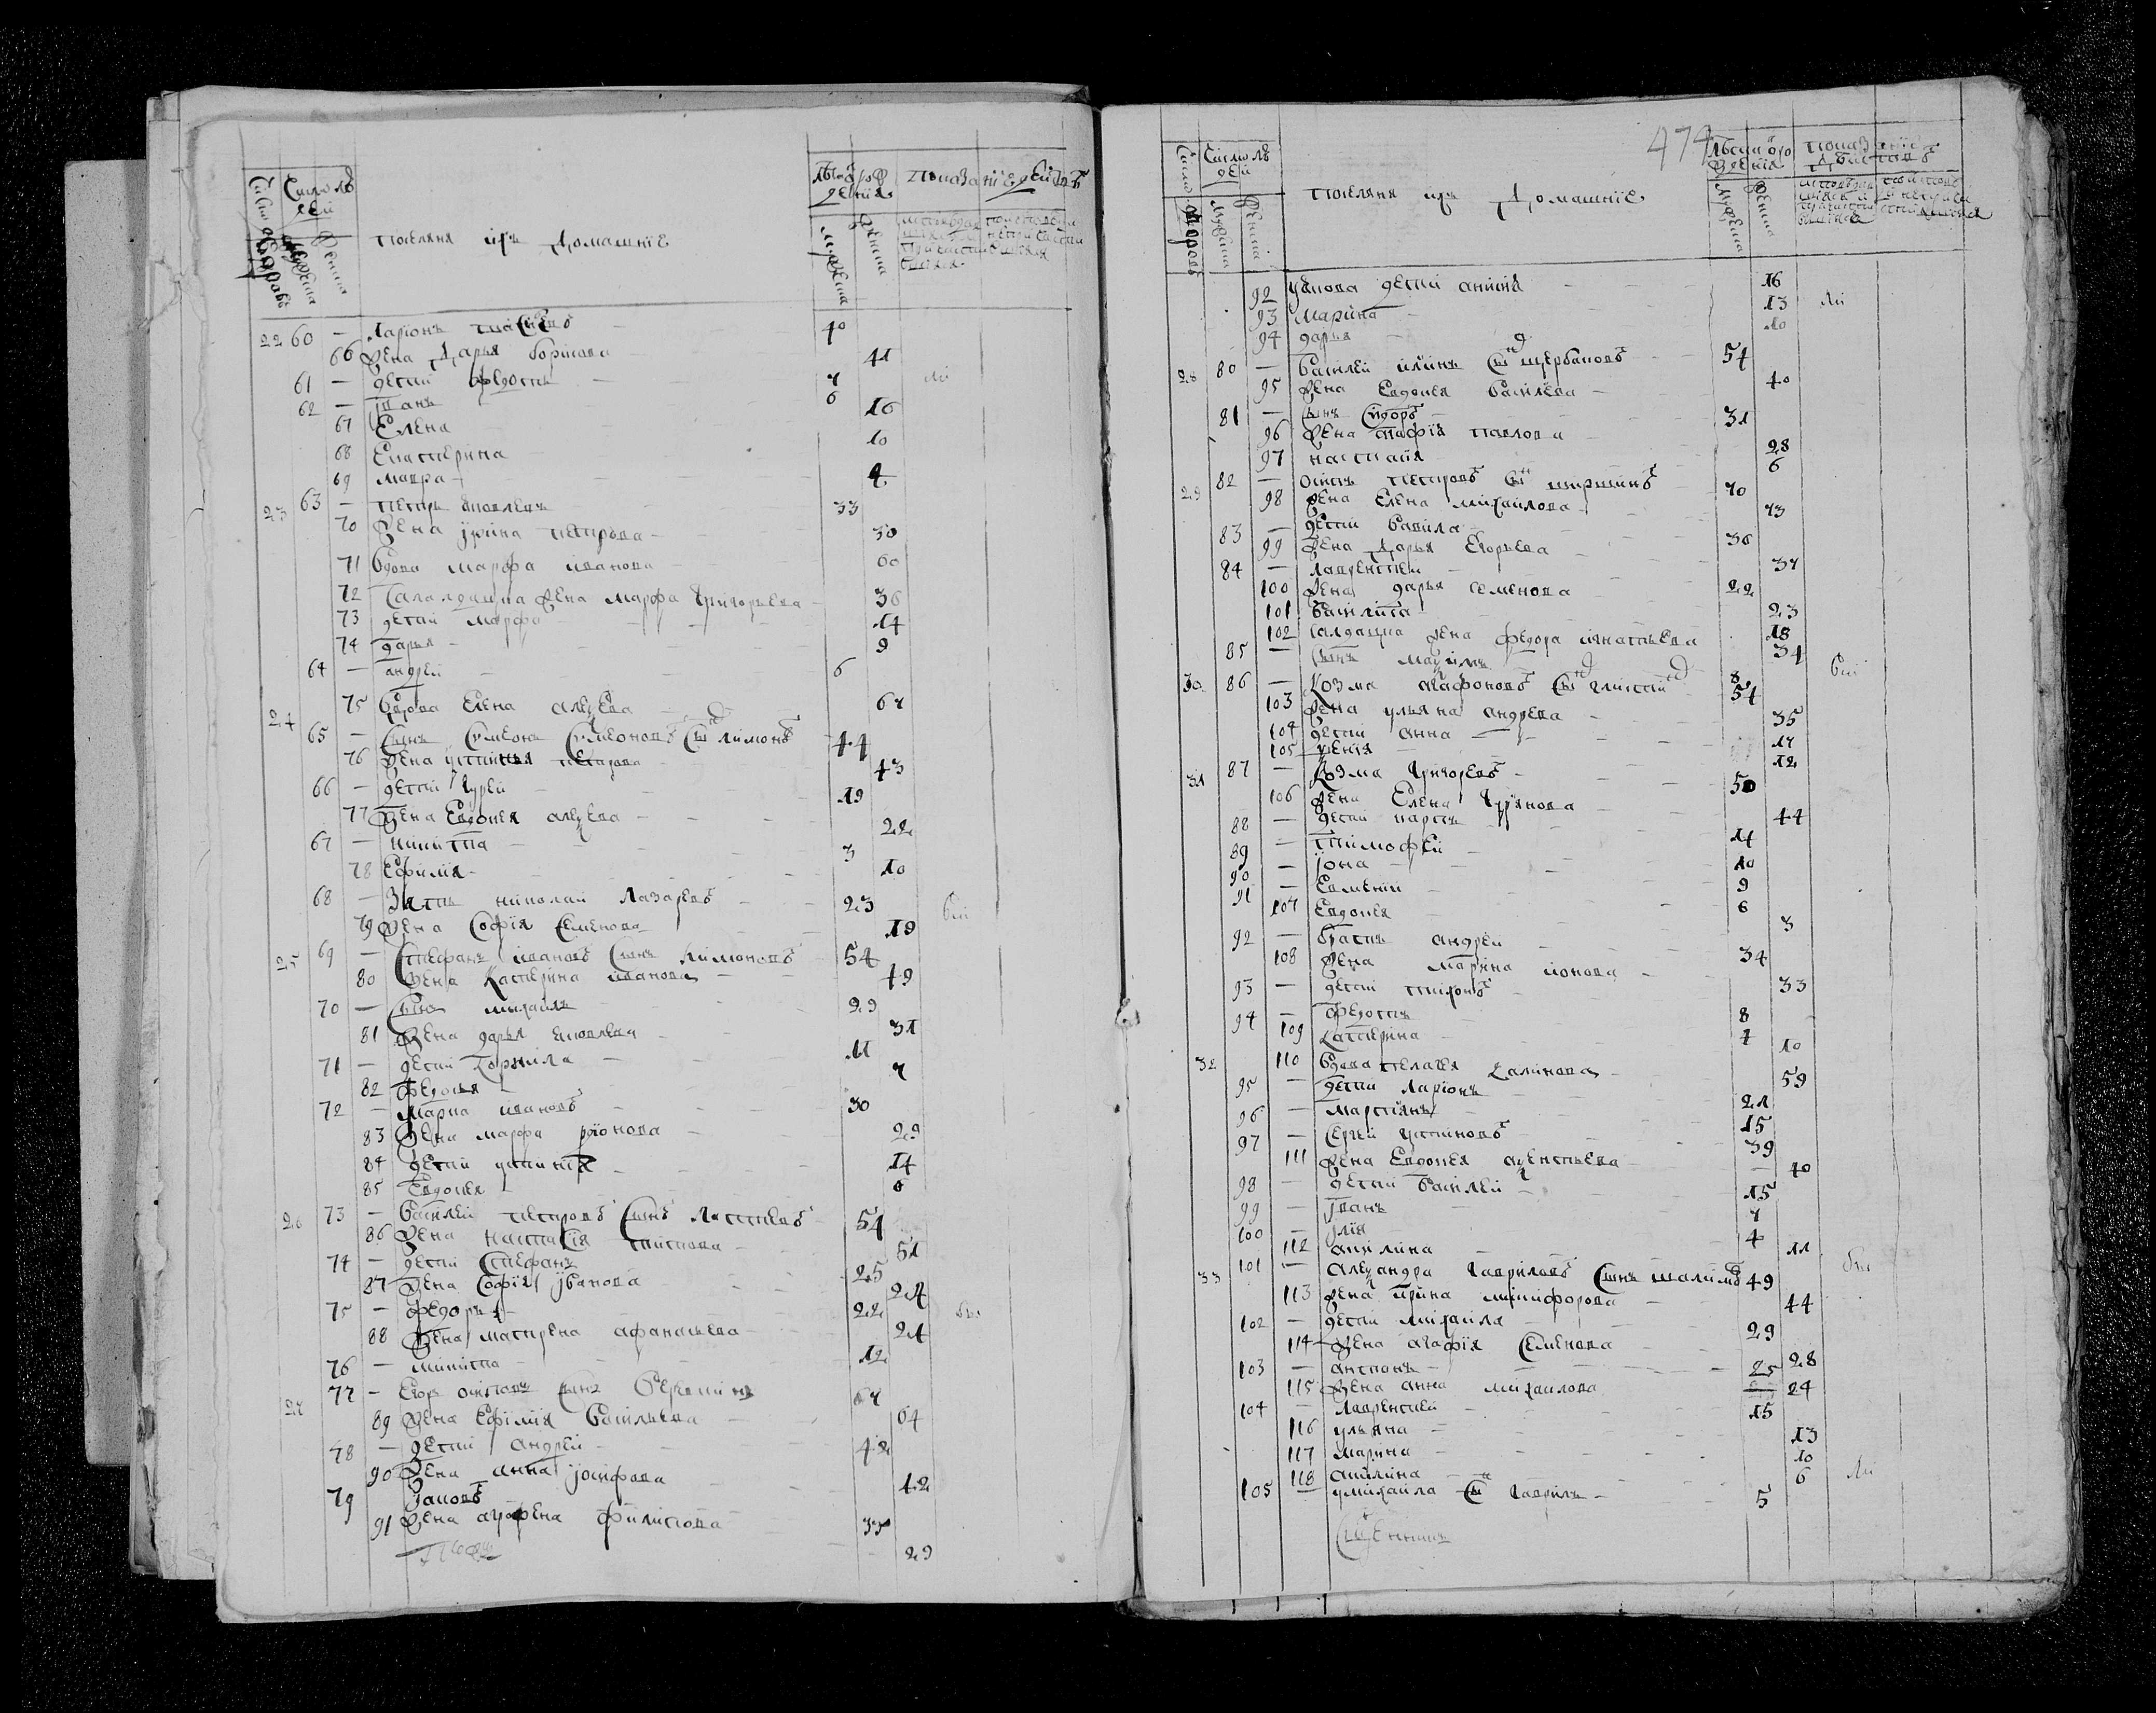 Число дворовъ
Число людей
мужеска
женска
поселяня ихъ Домашнїе
лѣта от рождения
мужеска
женска
показанїе действъ
22 60 — Ларїонъ 40
66 жена Дарья Борисова 41
61 — дети Федотъ 7
62 — Іванъ 6
67 Елена 16
68 Екатерина 10
69 Мавра 4
23 63 — Петръ Яковлевъ 33
70 жена Ірина Петрова 30
71 вдова Марфа Иванова 60
72 Салалдацка жена Марфа Григорьева 36
73 дети Марфа 14
74 Дарья 9
64 — андрей 6
24 75 вдова Елена алеѯева 67
65 — сынъ Сѵмеонъ Сѵмеоновъ сынъ Лимонъ 44
76 жена Устинья Петрова 43
66 — дети Гурей 19
77 жена Евдокея алеѯева 22
67 — Никита 3
78 Ефимїя 10
68 — Зять николай Лазаревъ 23
79 жена Софїя Семенова 19
25 69 — Стефанъ ивановъ сынъ Лимоновъ 54
80 жена Катерина иванова 49
70 — сынъ михайлъ 29
81 жена дарья яковлева 31
71 — дети Корнила 11
82 Федосья 7
72 — Марка ивановъ 30
83 жена марфа родїонова 29
84 дети устинїя 14
85 Евдокея 6
26 73 — Василей петровъ сынъ 54
86 жена настасїя титова 51
74 — дети Стефанъ 25
87 жена Софїя Іванова 24
75 — Федоръ 22
88 жена матрена афанасьева 24
76 — микита 12
27 77 — Егоръ осиповъ сынъ 67
89 жена Ефимїя Васильева 64
78 — дети андрей 42
90 жена анна Іосифова 42
79 Іаковъ 33
91 жена аграфена Филипова 29
474
Число дворовъ
Число людей
мужеска
женска
поселяня ихъ Домашнїе
лѣта от рождения
мужеска
женска
показанїе действъ
92 Іакова дети 16
93 Марина 13
94 дарья 10
28 80 — Василей илїинъ сынъ щербаковъ 54
95 жена Евдокея Василева 40
81 — сынъ Сидоръ 31
96 жена агафїя Павлова 28
97 настасїя 6
29 82 — осипъ Петровъ сынъ ширшинъ 70
98 жена Елена михайлова 73
83 — дети Вавила 36
99 жена Дарья Егорьева 37
84 — Лаврентей 22
100 жена дарья семенова 23
101 Василиса 18
102 салдацка жена федора игнатьева 34
85 — сынъ маѯимъ 8
30 86 — Козма агафоновъ сынъ 54
103 жена ульяна андрева 35
104 дети анна 17
105 ѯенїя 12
31 87 — Козма Григоревъ 50
106 жена Елена 44
88 — дети карпъ 14
89 — тимофей 10
90 — Іона 9
91 — Евмений 6
107 Евдокея 3
92 — братъ андрей 34
108 жена марина ионова 33
93 — дети тихонъ 8
94 — Федотъ 7
109 катерина 10
32 110 вдова Пелагея Калинова 59
95 — дети Ларїонъ 21
96 — Мартїянъ 15
97 — Сергей устиновъ 39
111 жена Евдокея 40
98 — дети Василей 15
99 — Іванъ 7
100 — Ілїя 4
112 акилина 11
33 101 — Алеѯандра Гавриловъ сынъ 49
113 жена ирина никифорова 44
102 — дети михайла 29
114 жена агафїя Семенова 28
103 — антонъ 25
115 жена анна михайлова 24
104 — Лаврентей 15
116 ульяна 13
117 марина 10
118 акилина 6
105 — у михайла сынъ Гаврилъ 5
Священникъ